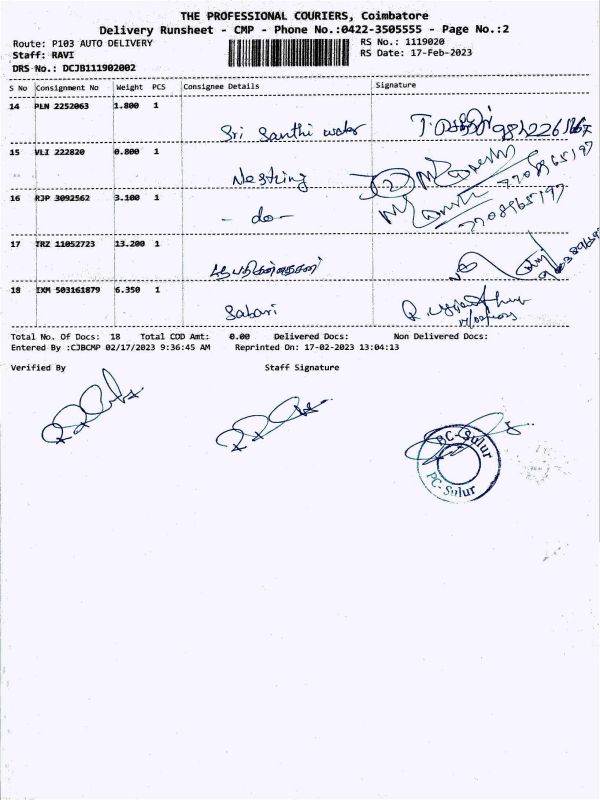 THE PROFESSIONAL COURIERS, Coimbatore
Delivery Runsheet - CMP - Phone No.:0422-3505555 - Page No.:2
Route: P103 AUTO DELIVERY
RS No.: 1119020
Staff: RAVI
RS Date: 17-Feb-2023
DRS No.: DCJB111902002
S No Consignment No Weight PCS Consignee Details Signature
14 PLN 2252063 1.800 1
Sri Santhi
15 VLI 222820 0.800 1
7708965197
16 RJP 3092562 3.100 1
- do - 7708965197
17 TRZ 11052723 13.200 1
18 IXM 503161879 6.350 1
Sabari
Total No. Of Docs: 18 Total COD Amt: 0.00 Delivered Docs: Non Delivered Docs:
Entered By :CJBCMP 02/17/2023 9:36:45 AM Reprinted On: 17-02-2023 13:04:13
Verified By Staff Signature
PC-Sulur
PC-Sulur